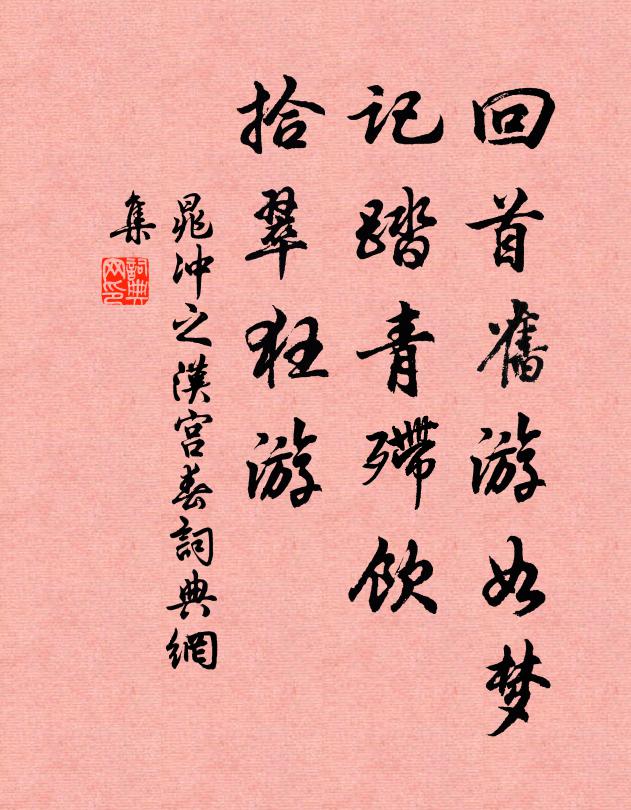 回首舊游如梦
記踏青殢飲
拾翠狂游
晁冲之漢宫春詞典網
集
詞典網印